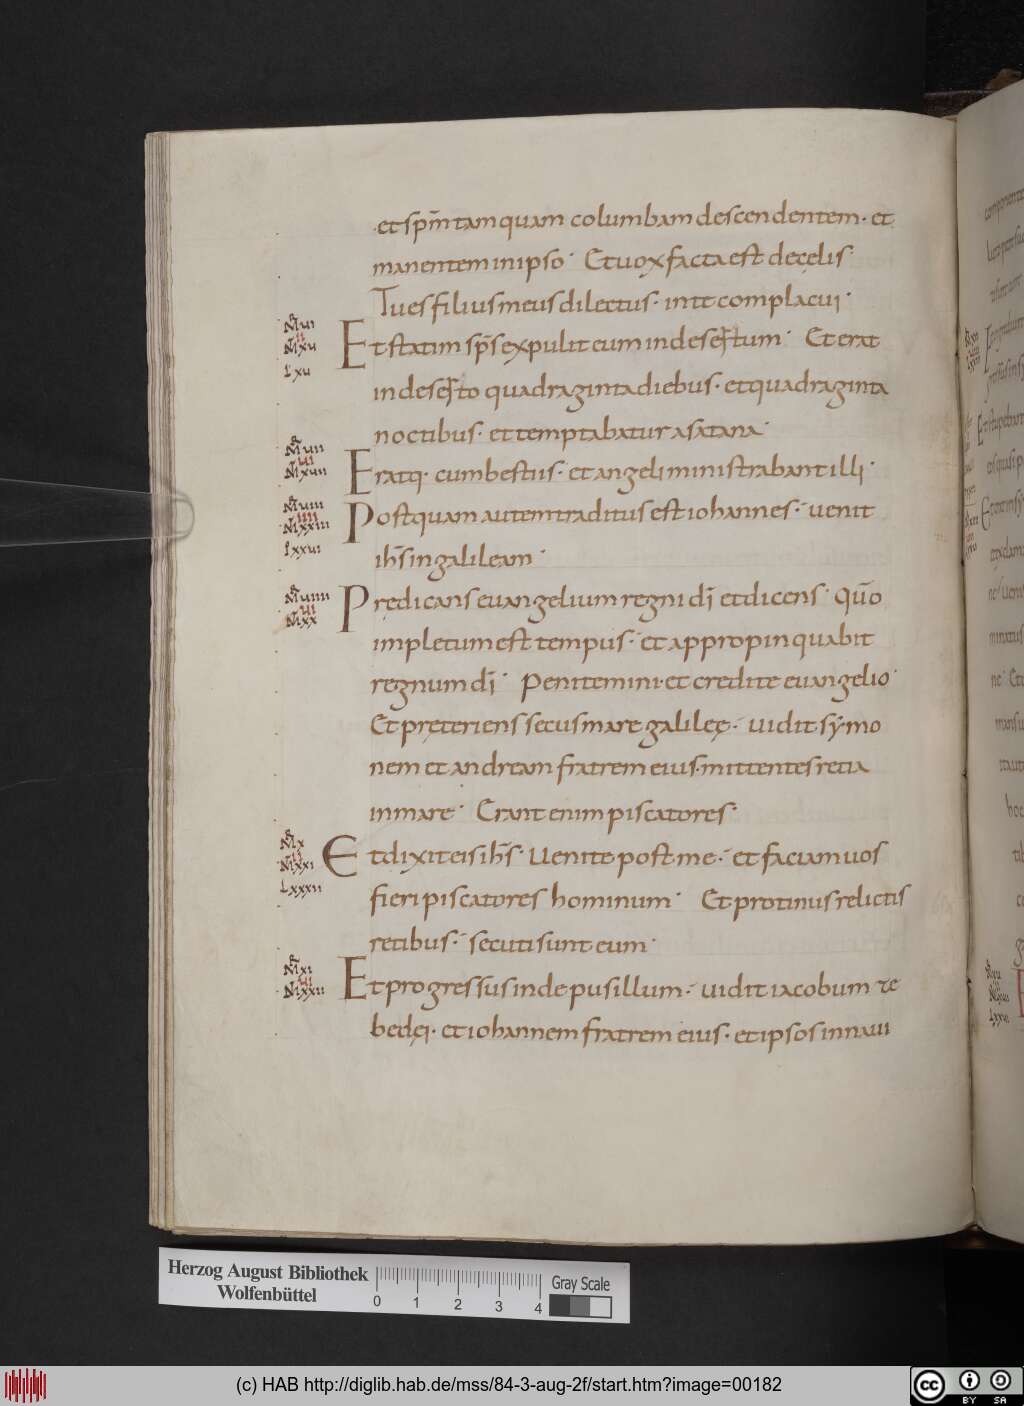 et sp̄m tamquam columbam descendentem · et
manentem in ipso · Et vox facta est de cęlis ·
Tu es filius meus dilectus · in te complacui ·
R
M̄ vi
II
M̄ xv
L xv
Et statim sp̄s expulit eum in desertum · Et erat
in deserto quadraginta diebus · et quadraginta
noctibus · et temptabatur a satana ·
R
M̄ vii
VI
M̄ xvii
Eratq· cum bestiis · et angeli ministrabant illi ·
R
M̄ viii
IIII
M̄ xxiii
I xxvi
Postquam autem traditus est iohannes · venit
ih̄s in galileam ·
R
M̄ viiii
VI
M̄ xx
Prędicans euangelium regni dī et dicens · Qūo
impletum est tempus · et appropinquabit
regnum dī · Penitemini · et credite euangelio ·
Et pręteriens secus mare galileę · vidit symo
nem et andream fratrem eius · mittentes retia
in mare · Erant enim piscatores ·
R
M̄ x
II
M̄ xxi
L xxxii
Et dixit eis ih̄s · Venite post me · et faciam vos
fieri piscatores hominum · Et protinus relictis
retibus · secuti sunt eum ·
R
M̄ xi
VI
M̄ xxii
Et progressus inde pusillum · vidit iacobum ze
bedęi · et iohannem fratrem eius · et ipsos in naui
Herzog August Bibliothek
Wolfenbüttel
0 1 2 3 4
Gray Scale
(c) HAB http://diglib.hab.de/mss/84-3-aug-2f/start.htm?image=00182
cc BY SA